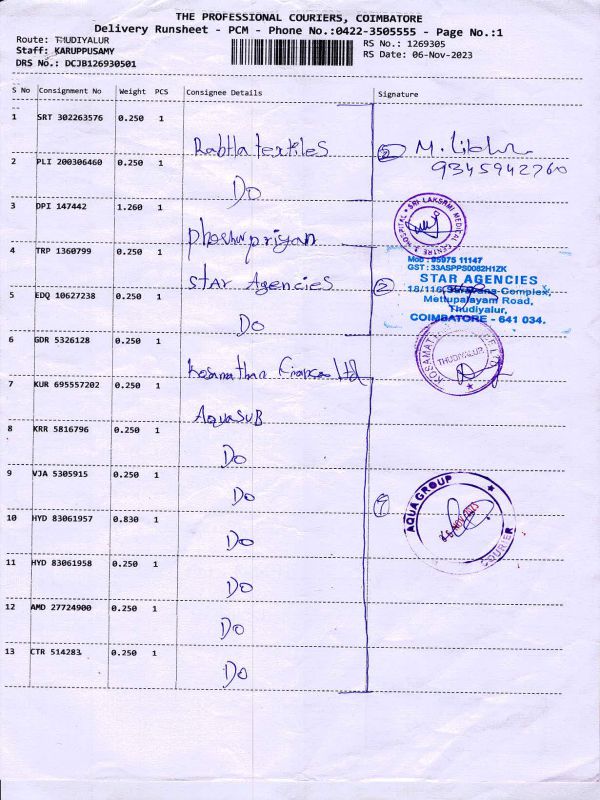 THE PROFESSIONAL COURIERS, COIMBATORE
Delivery Runsheet - PCM - Phone No.:0422-3505555 - Page No.:1
Route: THUDIYALUR
Staff: KARUPPUSAMY
DRS No.: DCJB126930501
RS No.: 1269305
RS Date: 06-Nov-2023
S No Consignment No Weight PCS Consignee Details Signature
1 SRT 302263576 0.250 1 textiles M.
2 PLI 200306460 0.250 1 Do 9345942760
3 DPI 147442 1.260 1
SRI LAKSHMI MEDICAL CENTRE & HOSPITAL
4 TRP 1360799 0.250 1 Star Agencies 2
Mob : 95975 11147
GST : 33ASPPS0082H1ZK
STAR AGENCIES
18/116, Complex,
Mettupalayam Road,
Thudiyalur,
COIMBATORE - 641 034.
5 EDQ 10627238 0.250 1 Do
6 GDR 5326128 0.250 1 Kosamathan Finance Ltd
THUDIYALUR
7 KUR 695557202 0.250 1 AquaSUB
8 KRR 5816796 0.250 1 Do
9 VJA 5305915 0.250 1 Do
AQUA GROUP
COURIER
10 HYD 83061957 0.830 1 Do
11 HYD 83061958 0.250 1 Do
12 AMD 27724900 0.250 1 Do
13 CTR 514283 0.250 1 Do